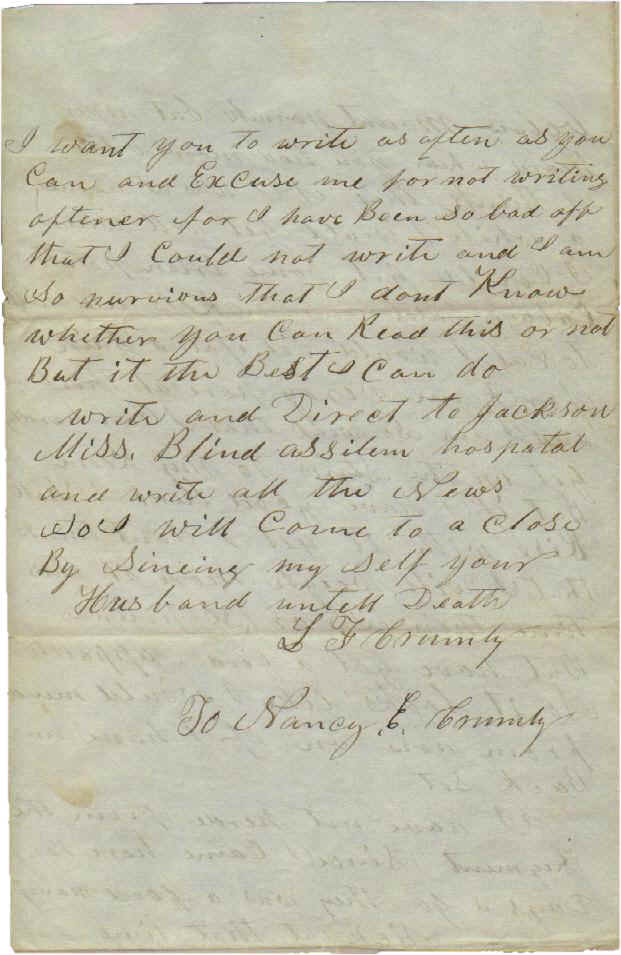 I want you to write as often as you
Can and Excuse me for not writing
oftener for I have Been So bad off
that I Could not write and I am
So nurvious that I dont Know
whether you Can Read this or not
But it the Best I Can do
write and Direct to Jackson
Miss. Blind assilem hospatal
and write all the News
So I will Come to a Close
By Sincing my Self your
Husband untell Death
L F Crumly
To Nancy .E. Crumly